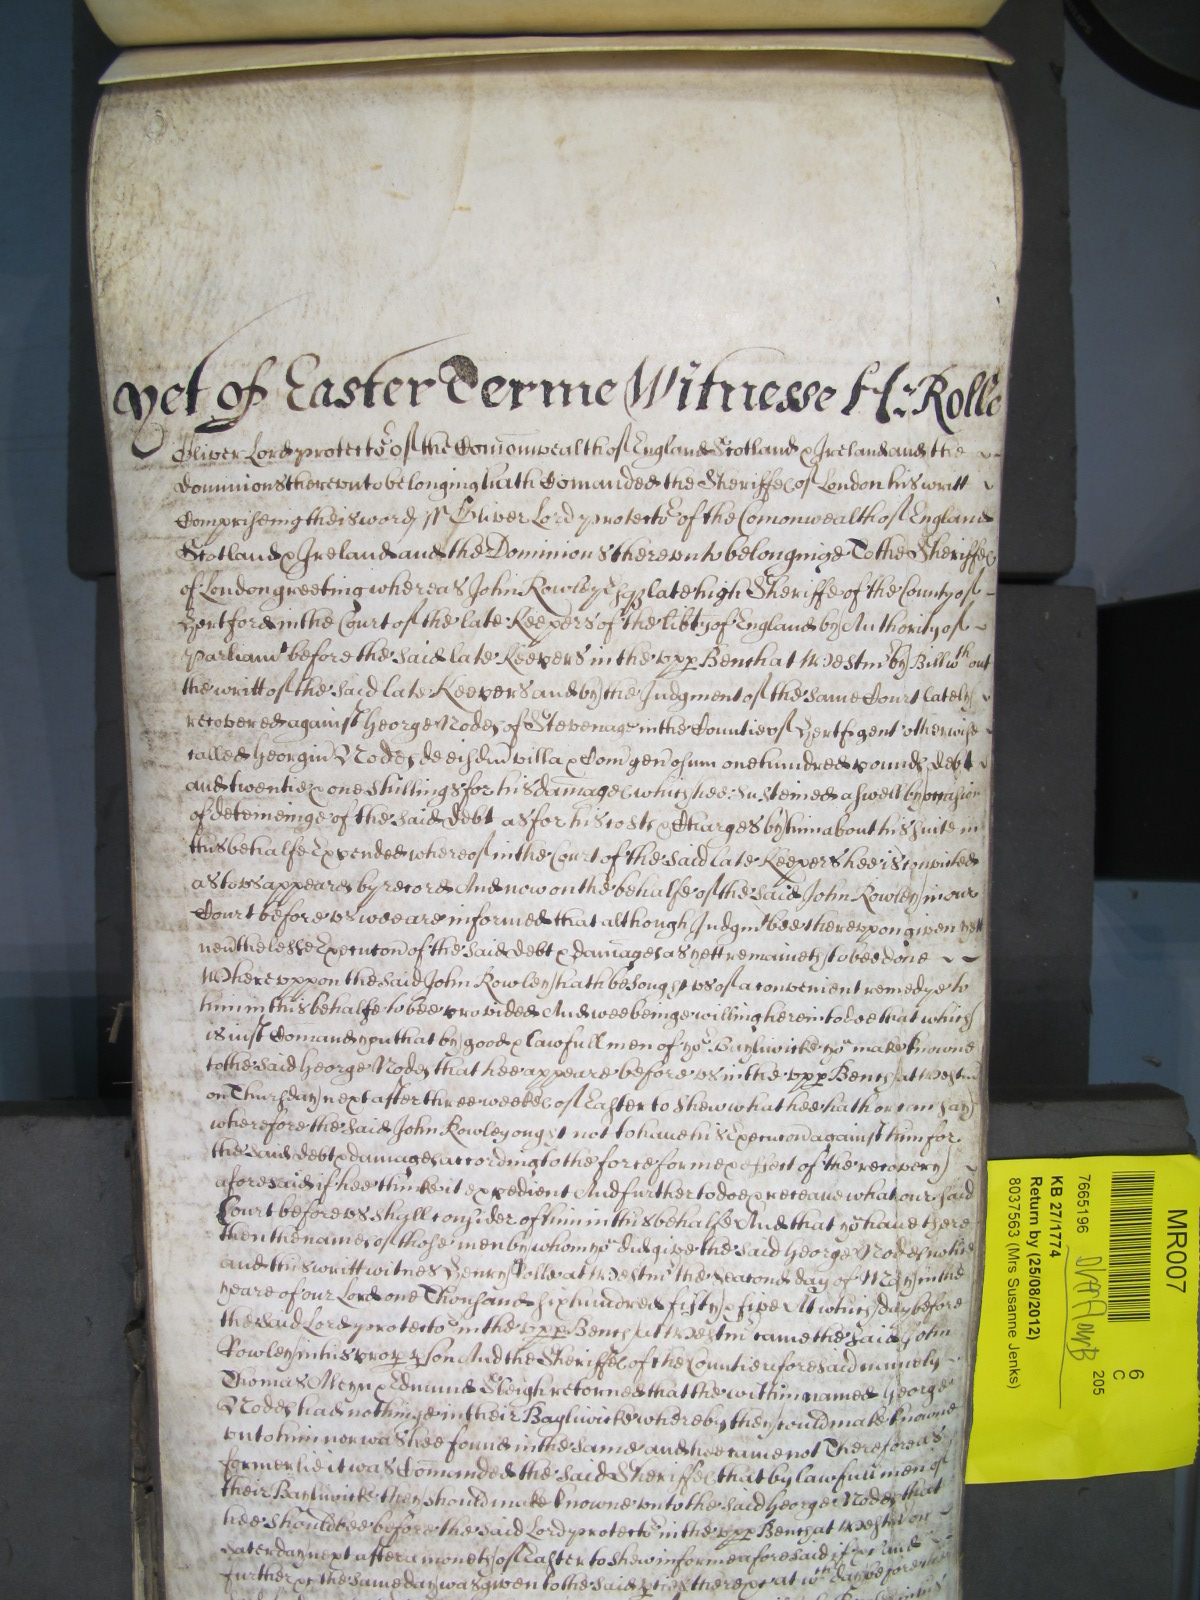 yet of Easter Terme Witnesse H: Rolle
Oliver Lord protector of the Comonwealth of England Scotland & Ireland and the
Dominions thereunto belonging hath Comanded the Sheriffes of London his writt
Compriseing theis words ss Oliver Lord protector of the Comonwealth of England
Scotland & Ireland and the Dominions thereunto belonginge To the Sheriffes
of London greeting whereas John Rowley Esqr late high Sheriffe of the County of
Hertford in the Court of the late Keepers of the libty of England by Authority of
Parliamt before the said late Keepers in the vpp Bench at Westmr by Bill wthout
the writt of the said late Keepers and by the Judgment of the same Court lately
recovered against George Nodes of Stevenage in the Countie of Hertf gent otherwise
called Georgiu Nodes de eisdm villa & Com gen osum one hundred pounds debt
and twentie & one shillings for his damages which hee susteined aswell by occasion
of deteineinge of the said debt as for his costs & Charges by him about his suite in
this behalfe Expended whereof in the Court of the said late Keepers hee is convicted
as to vs appeares by record And now on the behalfe of the said John Rowley in our
Court before vs wee are informed that although Judgmt bee thereupon given yett
nevthelesse Execucon of the said debt & damages as yett remaineth to bee done
Whereuppon the said John Rowley hath besought vs of a convenient remedye to
him in this behalfe to bee provided And wee beinge willing herein to doe that which
is just Comand you that by good & lawfull men of yor Bayliwicke yow make knowne
to the said George Nodes that hee appeare before vs in the vpp Bench at Westmr
on Thursday next after three weekes of Easter to shew what hee hath or can say
wherefore the said John Rowley ought not to have his Execucon against him for
the said debt & damages according to the force forme & effect of the recovery
aforesaid if hee thinke it expedient And further to doe & receave what our said
Court before vs shall consider of him in this behalfe And that yow have there
then the names of those men by whom yow did give the said George Nodes notice
and this writt witnes Henry Rolle at Westmr the second day of May in the
yeare of our Lord one Thousand six hundred fifty & five At which day before
the said Lord protector in the vpp Bench at Westmr came the said John
Rowley in his proper pson And the Sheriffes of the Countie aforesaid namely
Thomas Aleyn & Edmund Sleigh returned that the within named George
Nodes had nothinge in their Bayliwicke whereby they could make knowne
vnto him nor was hee found in the same and hee came not Therefore as
formerlie it was Comanded the said Sheriffes that by lawfull men of
their Bayliwicke they should make knowne vnto the said George Nodes that
hee should bee before the said Lord protector in the vpp Bench at Westmr on
Saterday next after a moneth of Easter to shew in forme aforesaid if &c And
further &c the same day was given to the said there &c at wch day before
MR007
6
C
205
7665196
KB 27/1774
Return by (25/08/2012)
8037563 (Mrs Susanne Jenks)